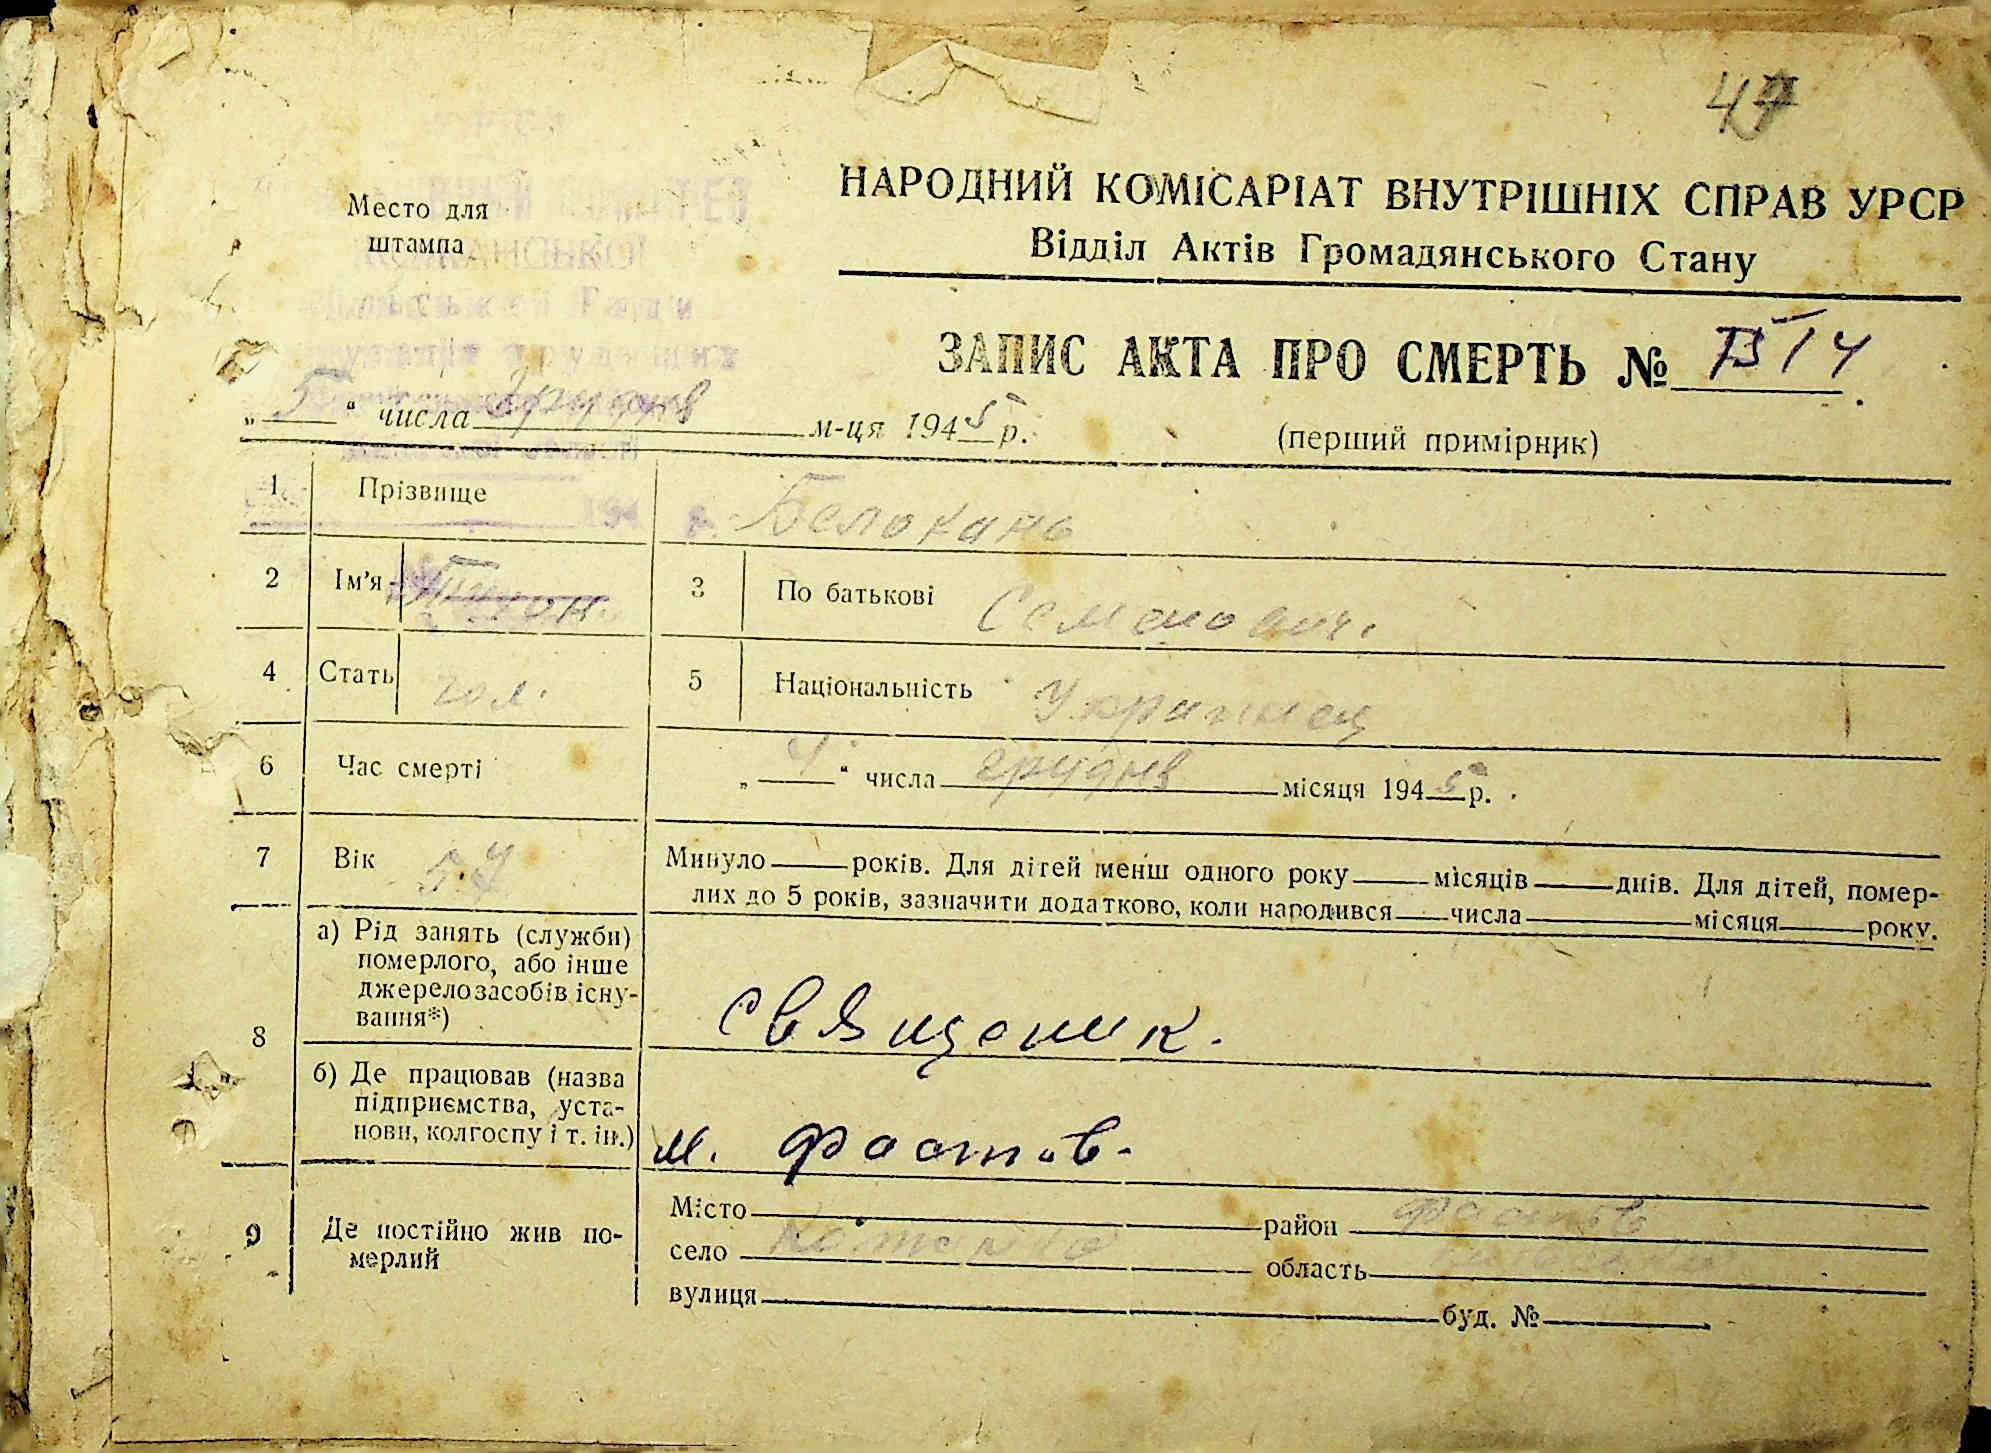 47
Место для
штампа
НАРОДНИЙ КОМІСАРІАТ ВНУТРІШНІХ СПРАВ УРСР
Відділ Актів Громадянського Стану
ЗАПИС АКТА ПРО СМЕРТЬ № 14
„ 5 “ числа грудня м-ця 1945 р.
(перший примірник)
1 Прізвище Белокань
2 Ім'я Тихон. 3 По батькові Семенович.
4 Стать чол. 5 Національність Украинец
6 Час смерті „ 4 “ числа грудня місяця 1945 р.
7 Вік 57 Минуло року років. Для дітей менш одного року місяців днів. Для дітей, помер-
лих до 5 років, зазначити додатково, коли народився числа місяця року.
8 а) Рід занять (служби)
померлого, або інше
джерело засобів існу-
вання*)
Священик.
б) Де працював (назва
підприємства, уста-
нови, колгоспу і т. ін.)
м. Фастов.
9 Де постійно жив по-
мерлий
Місто район Фастов
село область
вулиця буд. №